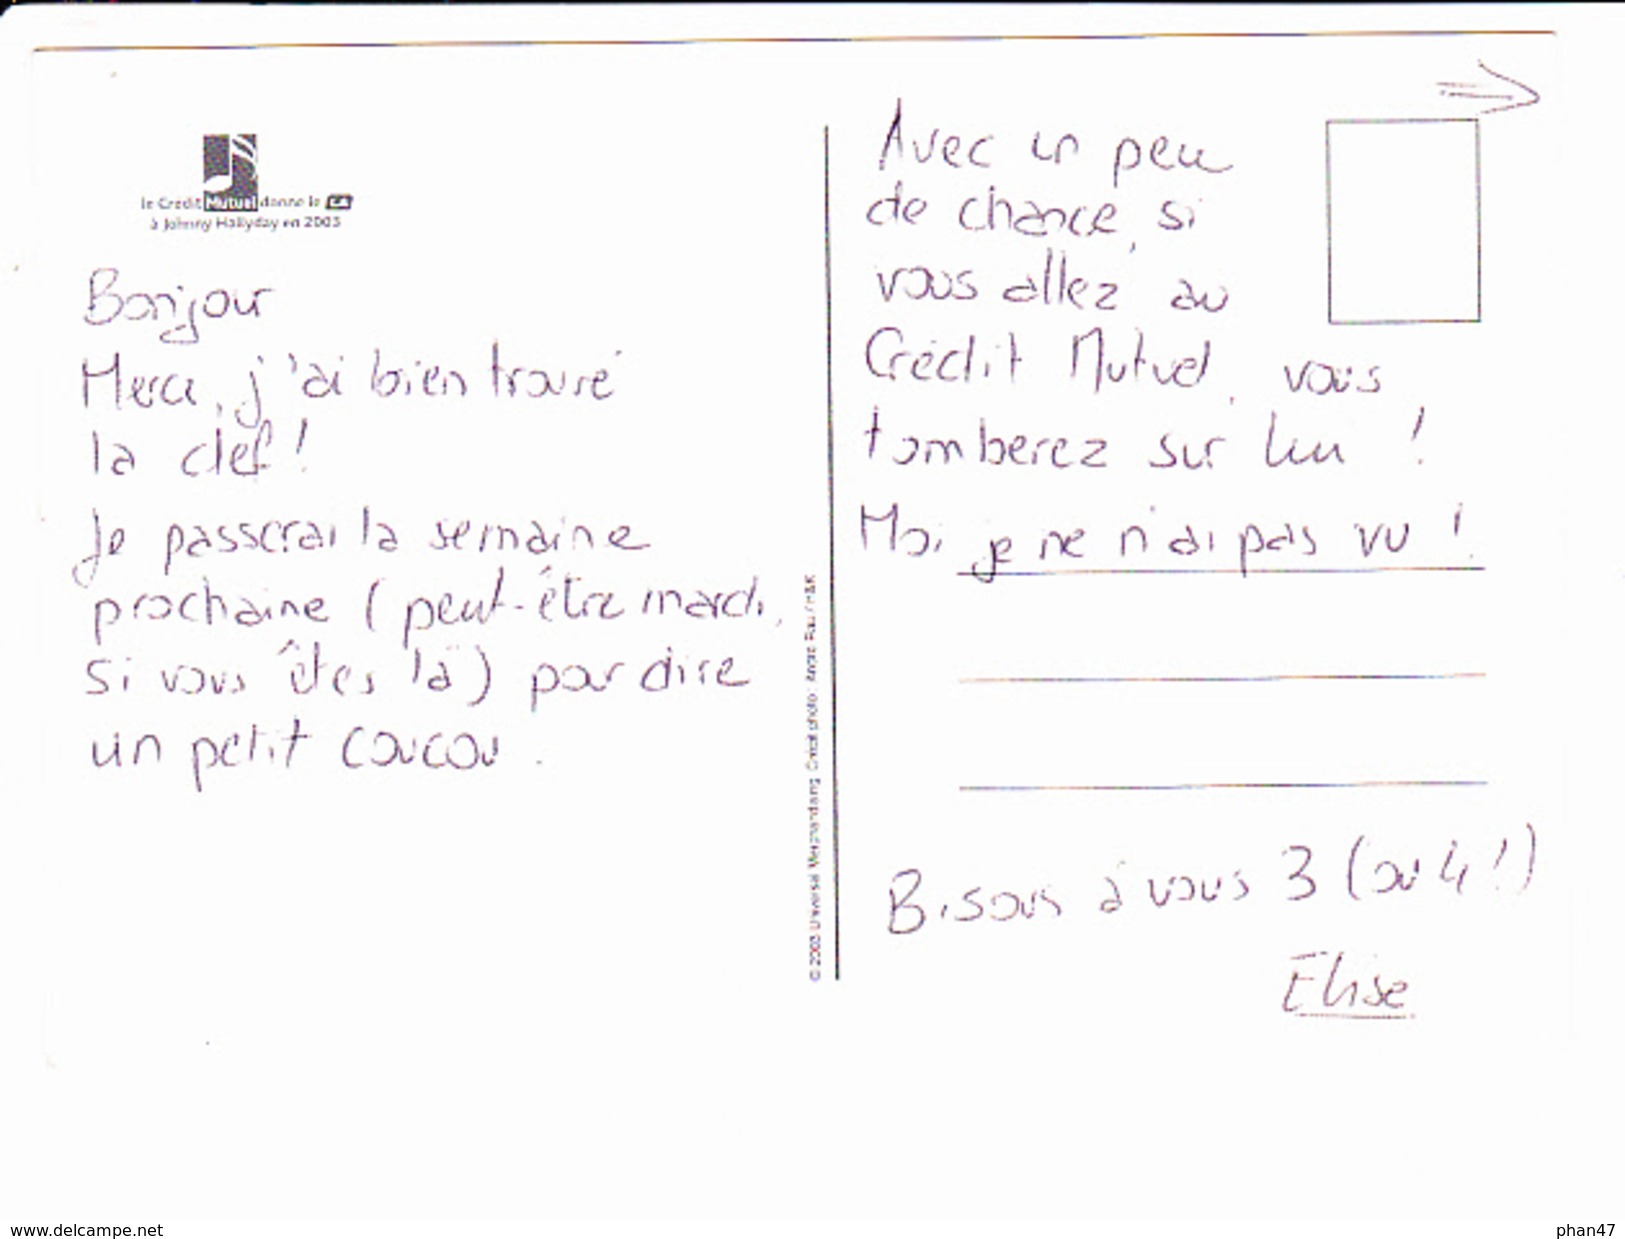 le Crédit Mutuel donne le LA
à Johnny Hallyday en 2003
Bonjour
Merci, j'ai bien trouvé
la clef !
Je passerai la semaine
prochaine (peut-être mardi,
si vous êtes là) pour dire
un petit coucou.
© 2003 Universal Merchandising Crédit photo : André Rau / H&K
Avec un peu
de chance, si
vous allez au
Crédit Mutuel, vous
tomberez sur lui !
Moi je ne n'ai pas vu !
Bisous à vous 3 (ou 4 !)
Elise
www.delcampe.net
phan47